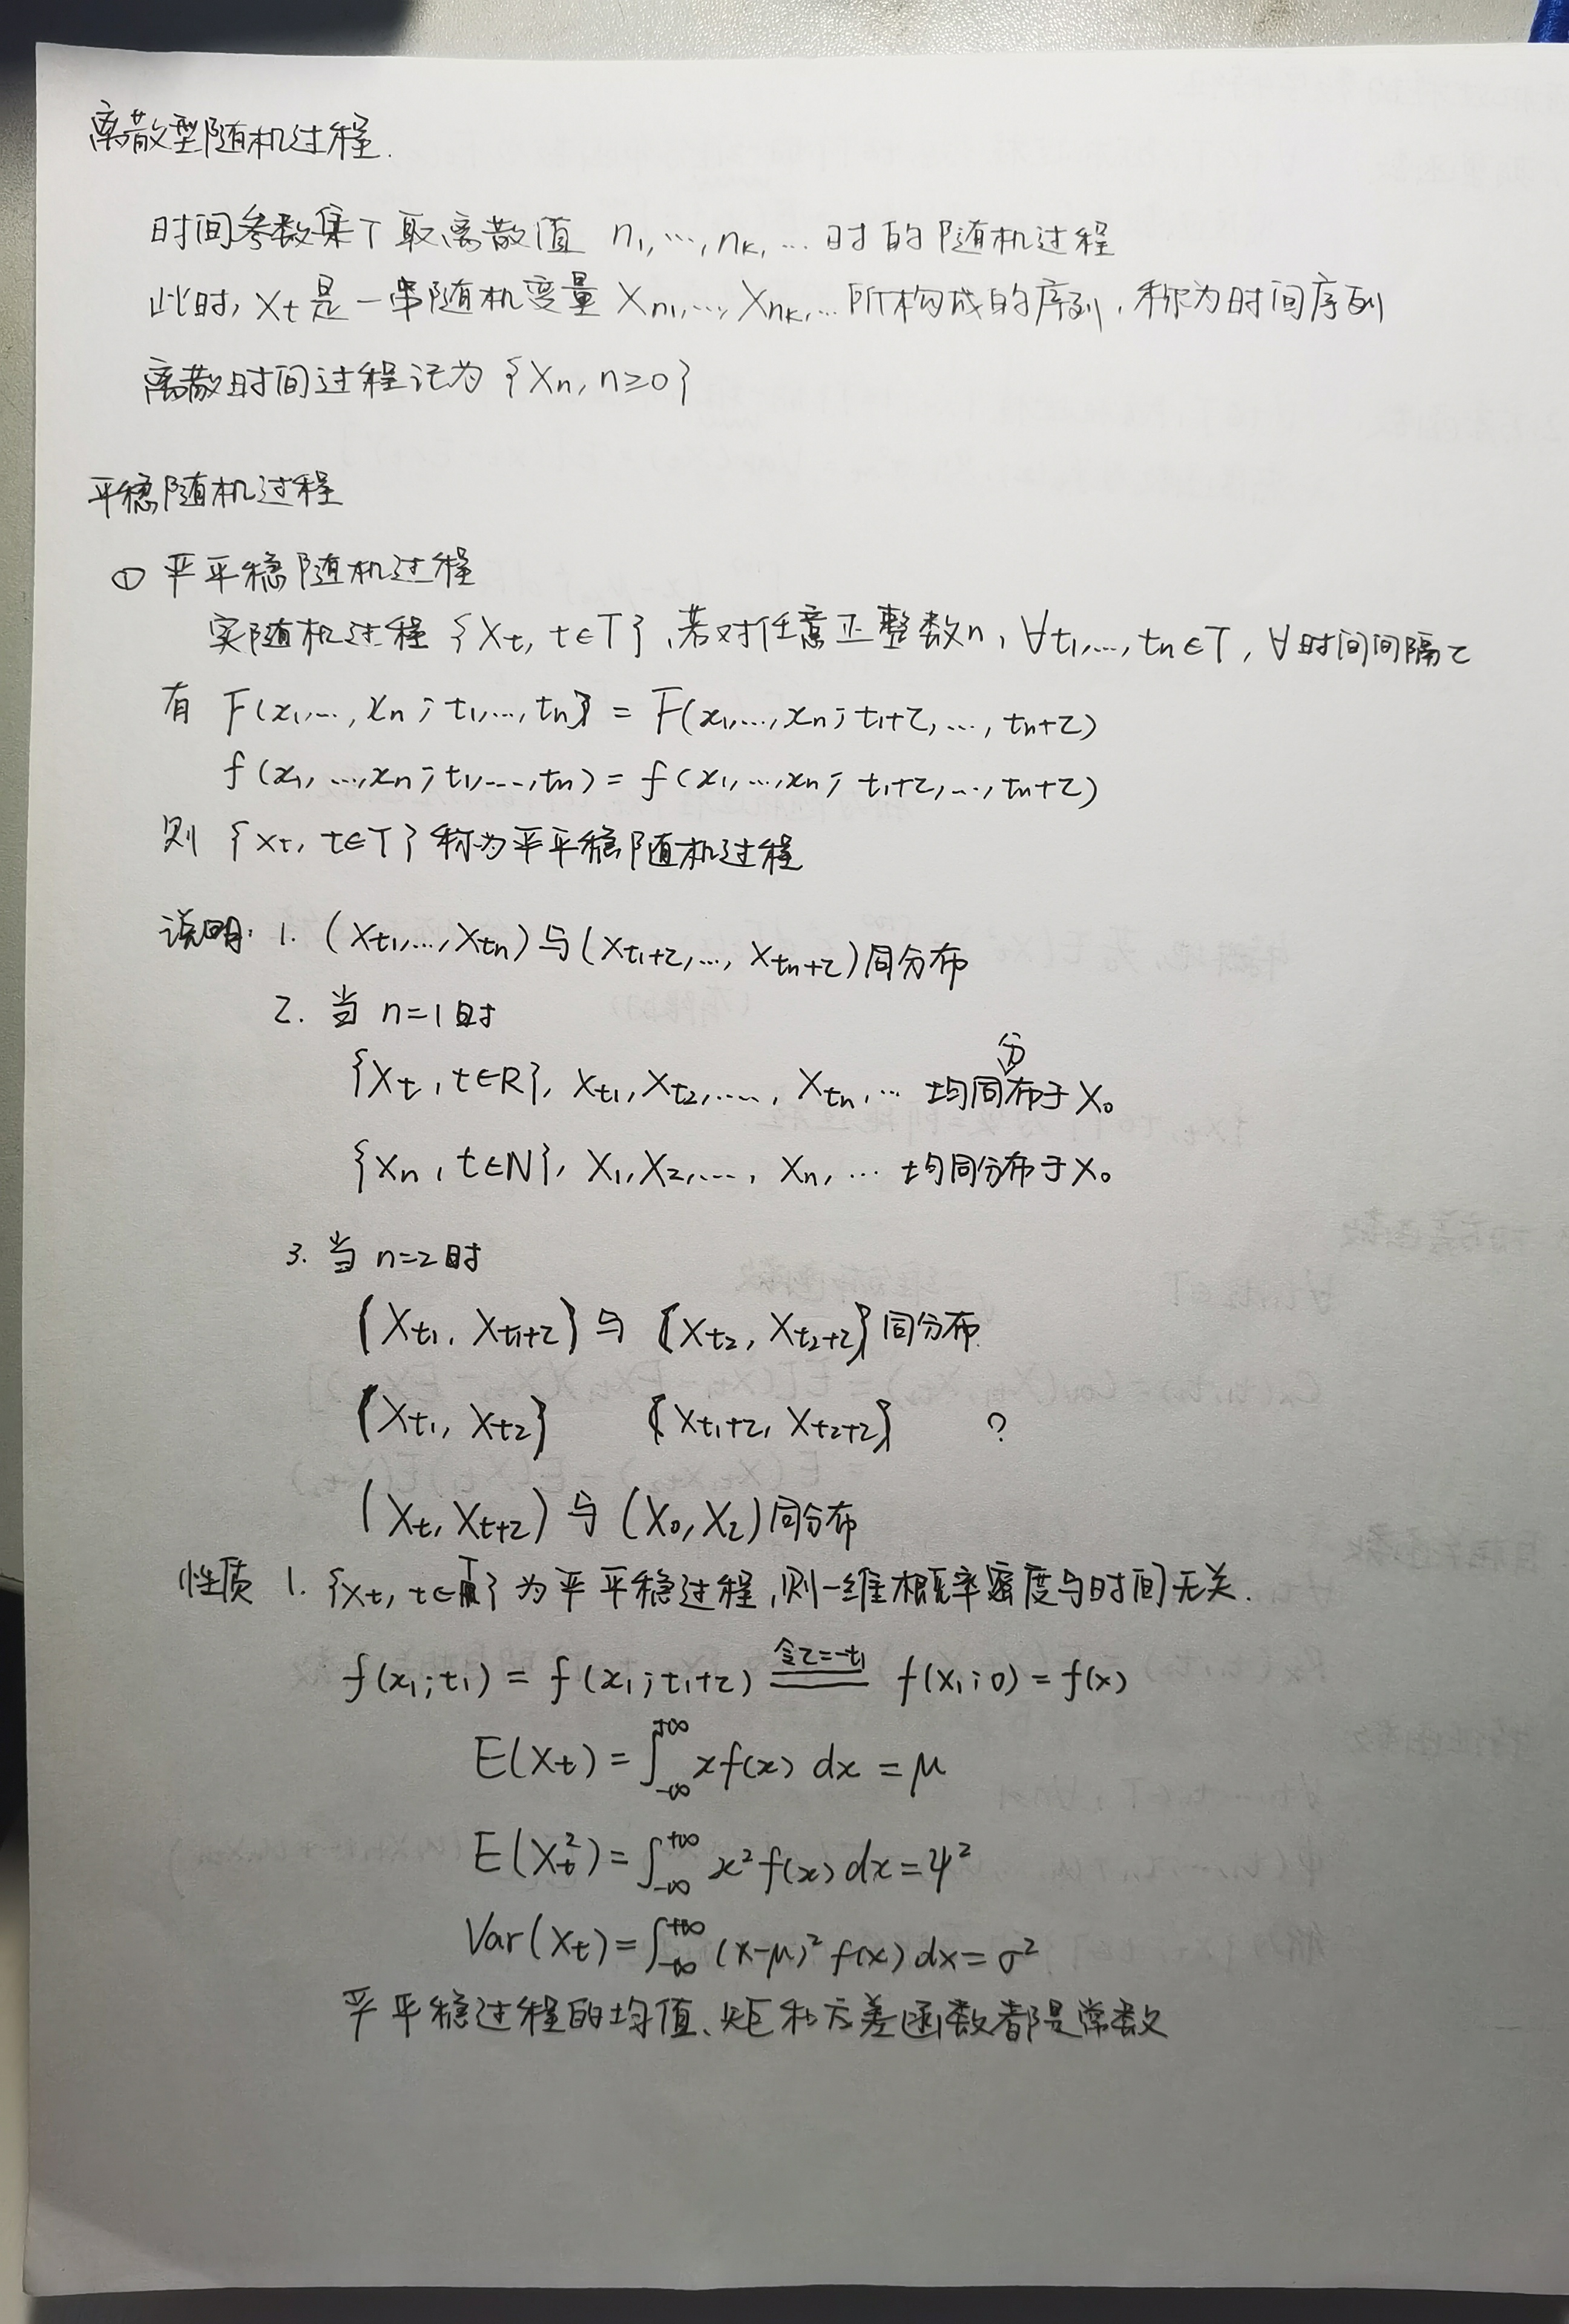 离散型随机过程.
时间参数集T取离散值 n₁,…,nₖ,… 时的随机过程
此时, Xt 是一串随机变量 Xn₁,…, Xnₖ,… 所构成的序列, 称为时间序列
离散时间过程记为 {Xn, n≥0}
平稳随机过程
① 严平稳随机过程
实随机过程 {Xt, t∈T}, 若对任意正整数n, ∀t₁,…,tn∈T, ∀时间间隔τ
有 F(x₁,…, xn; t₁,…, tn) = F(x₁,…, xn; t₁+τ,…, tn+τ)
f(x₁, …,xn; t₁,…,tn) = f(x₁,…,xn; t₁+τ,…, tn+τ)
则 {Xt, t∈T} 称为严平稳随机过程
说明: 1. (Xt₁,…, Xtn) 与 (Xt₁+τ,…, Xtn+τ) 同分布
2. 当 n=1时
{Xt, t∈R}, Xt₁, Xt₂,……, Xtn,… 均同分布于 X₀
{Xn, t∈N}, X₁, X₂,……, Xn, … 均同分布于 X₀
3. 当 n=2时
(Xt₁, Xt₁+τ) 与 (Xt₂, Xt₂+τ) 同分布.
(Xt₁, Xt₂) (Xt₁+τ, Xt₂+τ) ?
(Xt, Xt+τ) 与 (X₀, Xτ) 同分布
性质 1. {Xt, t∈T} 为严平稳过程, 则一维概率密度与时间无关.
f(x₁; t₁) = f(x₁; t₁+τ) 令τ=-t₁ f(x₁; 0) = f(x)
E(Xt) = ∫₋∞⁺∞ xf(x) dx = μ
E(Xt²) = ∫₋∞⁺∞ x² f(x) dx = ψ²
Var(Xt) = ∫₋∞⁺∞ (x-μ)² f(x) dx = σ²
严平稳过程的均值、矩和方差函数都是常数